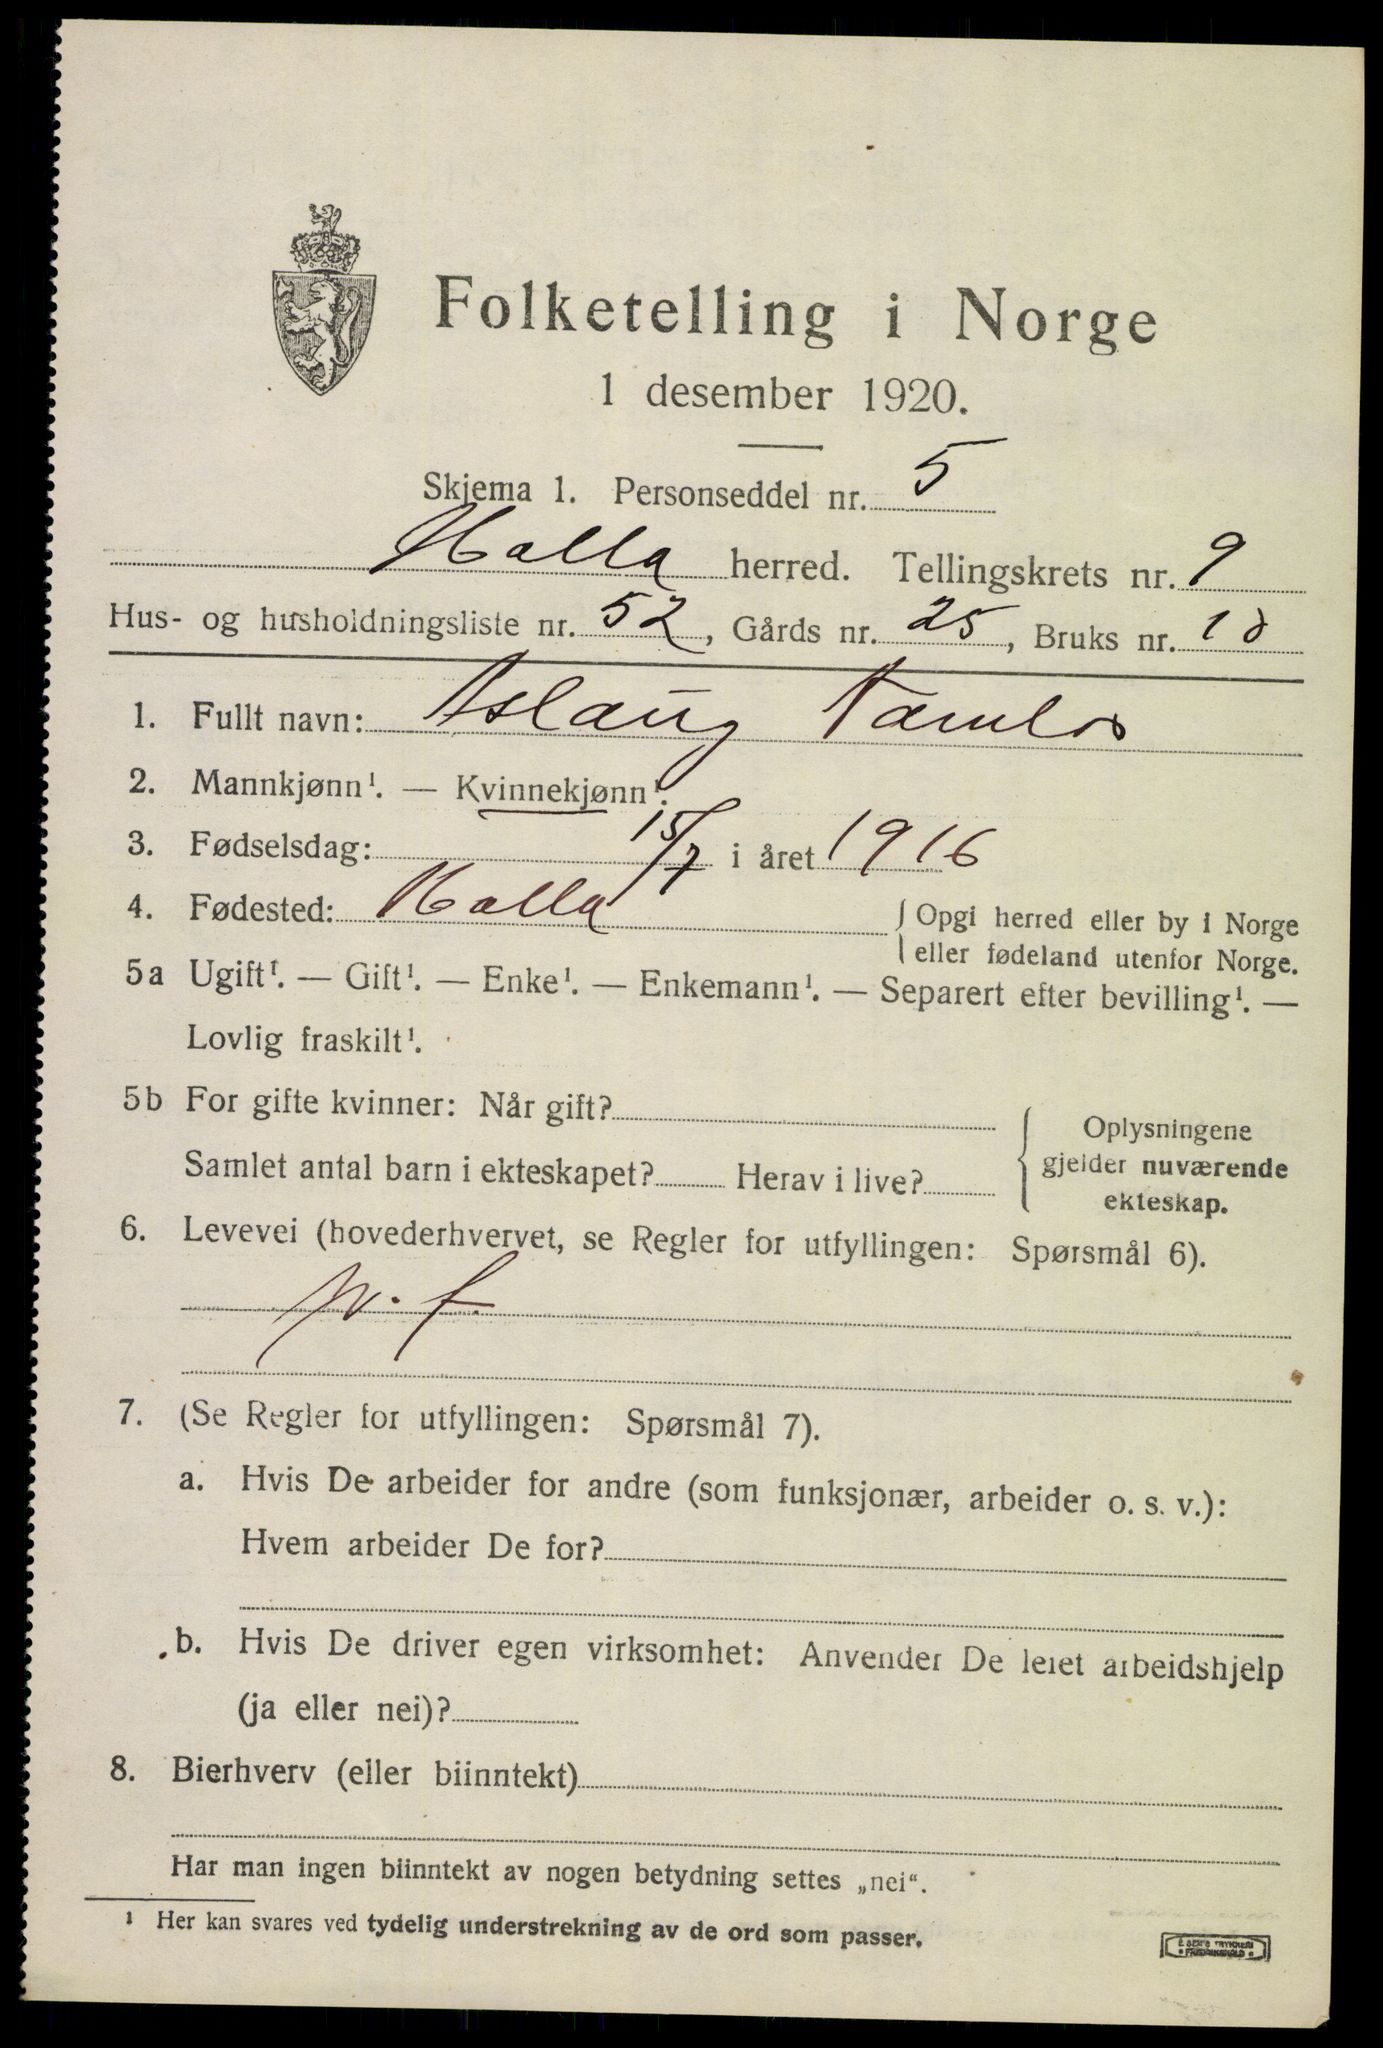 Folketelling i Norge
1 desember 1920.
Skjema 1. Personseddel nr. 5
Holla herred. Tellingskrets nr. 9
Hus- og husholdningsliste nr. 52, Gårds nr. 25, Bruks nr. 10
1. Fullt navn: Aslaug
2. Mannkjønn¹. — Kvinnekjønn¹.
3. Fødselsdag: 15/7 i året 1916
4. Fødested: Holla { Opgi herred eller by i Norge
eller fødeland utenfor Norge.
5a Ugift¹. — Gift¹. — Enke¹. — Enkemann¹. — Separert efter bevilling¹. —
Lovlig fraskilt¹.
5b For gifte kvinner: Når gift?
Samlet antal barn i ekteskapet? Herav i live?
{ Oplysningene
gjelder nuværende
ekteskap.
6. Levevei (hovederhvervet, se Regler for utfyllingen: Spørsmål 6).
7. (Se Regler for utfyllingen: Spørsmål 7).
a. Hvis De arbeider for andre (som funksjonær, arbeider o. s. v.):
Hvem arbeider De for?
b. Hvis De driver egen virksomhet: Anvender De leiet arbeidshjelp
(ja eller nei)?
8. Bierhverv (eller biinntekt)
Har man ingen biinntekt av nogen betydning settes „nei“.
¹ Her kan svares ved tydelig understrekning av de ord som passer.